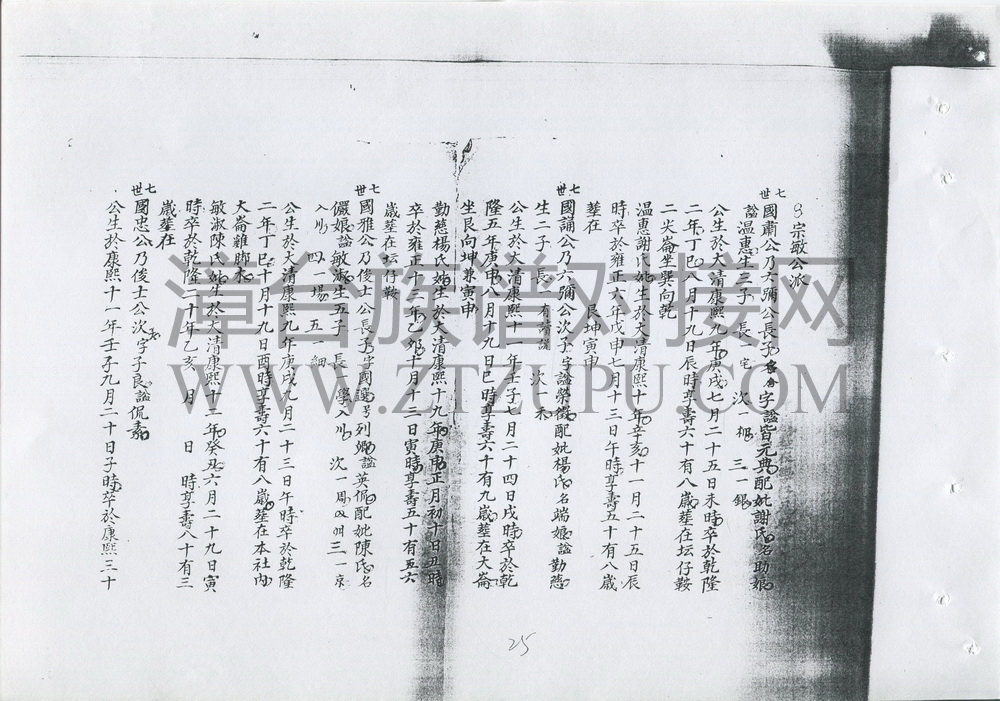 8宗敏公派
七世 國肅公乃六彌公長子名 字 諡皆元典配妣謝氏名助娘
諡溫惠生三子 長一宅 次一 三一銀
公生於大清康熙九年庚戌七月二十五日未時卒於乾隆
二年丁巳八月十九日辰時享壽六十有八歲塟在坛仔鞍
二尖崙坐巽向乾
溫惠謝氏妣生於大清康熙十年辛亥十一月二十五日辰
時卒於雍正六年戊申七月十三日午時享壽五十有八歲
塟在 艮坤寅申
七世 國誦公乃六彌公次子字 諡榮徵配妣楊氏名端娘諡勤慈
生二子 長一 次一
公生於大清康熙十一年壬子七月二十四日戌時卒於乾
隆五年庚申八月十九日巳時享壽六十有九歲塟在大崙
坐艮向坤兼寅申
勤慈楊氏妣生於大清康熙十九年庚申正月初十日丑時
卒於雍正十三年乙卯十月十三日寅時享壽五十有五六
歲塟在坛仔鞍
七世 國雅公乃俊士公長子字國 号列卿諡英 配妣陳氏名
儼娘諡敏淑生五子 長一學入川 次一 三一京
入川 四一場 五一細
公生於大清康熙九年庚戌九月二十三日午時卒於乾隆
二年丁巳十月十九日酉時享壽六十有八歲塟在本社內
大崙雞脚木
敏淑陳氏妣生於大清康熙十二年癸丑六月二十九日寅
時卒於乾隆二十年乙亥 月 日 時享壽八十有三
歲塟在
七世 國忠公乃俊士公次子字子良諡侃嘉
公生於康熙十一年壬子九月二十日子時卒於康熙三十
25
漳台族谱对接网
WWW.ZTZUPU.COM